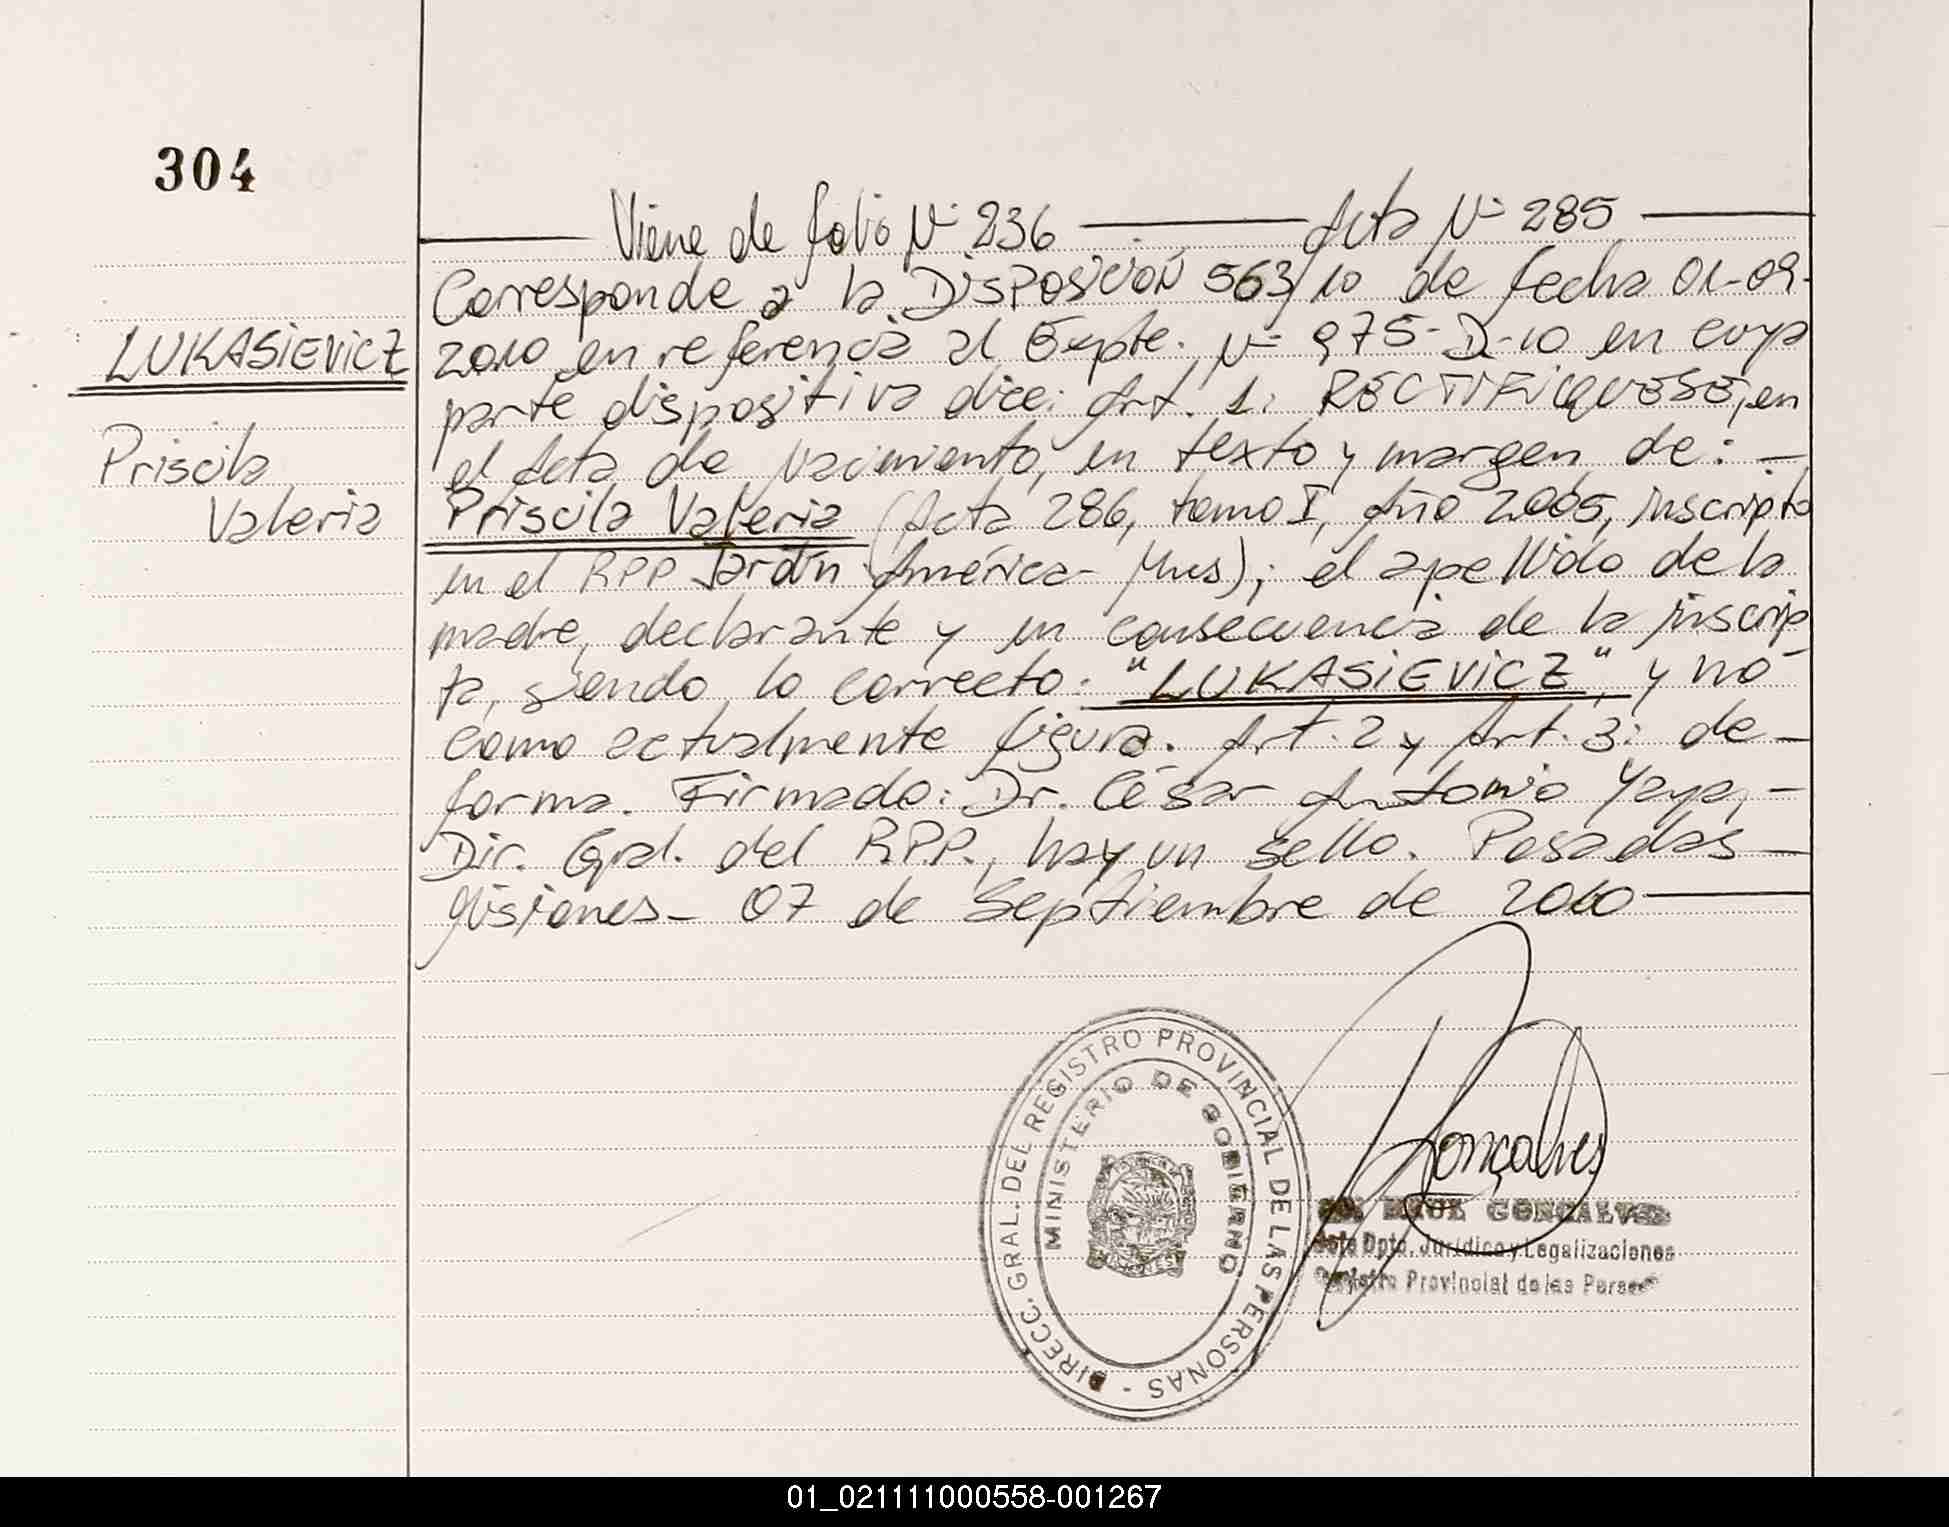 304
Viene de folio Nº 236 Acta Nº 285
LUKASIEVICZ
Priscila
Valeria
Corresponde a la DISPOSICIÓN 563/10 de fecha 01-09-
2010 en referencia al Expte. Nº 975-D-10 en cuya
parte dispositiva dice: Art. 1: RECTIFIQUESE, en
el Acta de Nacimiento, en texto y margen de: -
Priscila Valeria (Acta 286, tomo I, Año 2005, inscripta
en el RPP Jardín América - Mnes); el apellido de la
madre, declarante y en consecuencia de la inscrip
ta, siendo lo correcto: "LUKASIEVICZ", y no
como actualmente figura. Art. 2 y Art. 3: de -
forma. Firmado: Dr. César Antonio Yaya, -
Dir. Gral. del RPP., hay un sello. Posadas -
Misiones - 07 de Septiembre de 2010
DIRECC. GRAL. DEL REGISTRO PROVINCIAL DE LAS PERSONAS -
MINISTERIO DE GOBIERNO
MISIONES
Gonçalves
GONCALVES
Dpto. Jurídico y Legalizaciones
Registro Provincial de las Personas
01_021111000558-001267